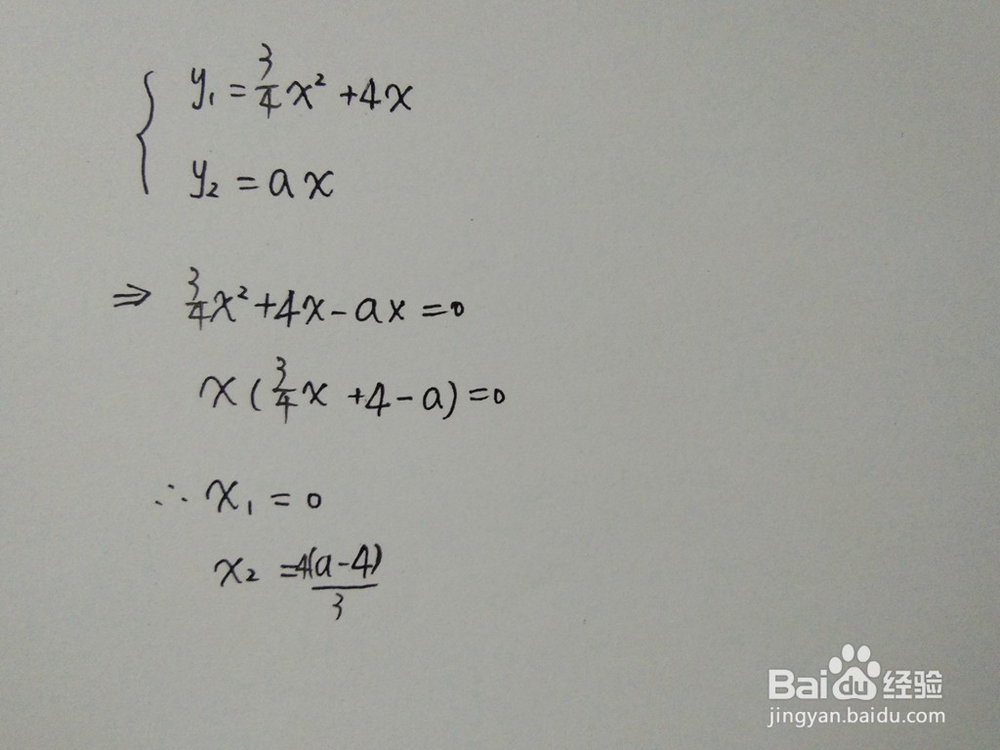 y₁ = 3/4 x² + 4x
y₂ = ax
⇒ 3/4 x² + 4x - ax = 0
x ( 3/4 x + 4 - a) = 0
∴ x₁ = 0
x₂ = 4(a-4)/3
Baidu 经验
jingyan.baidu.com